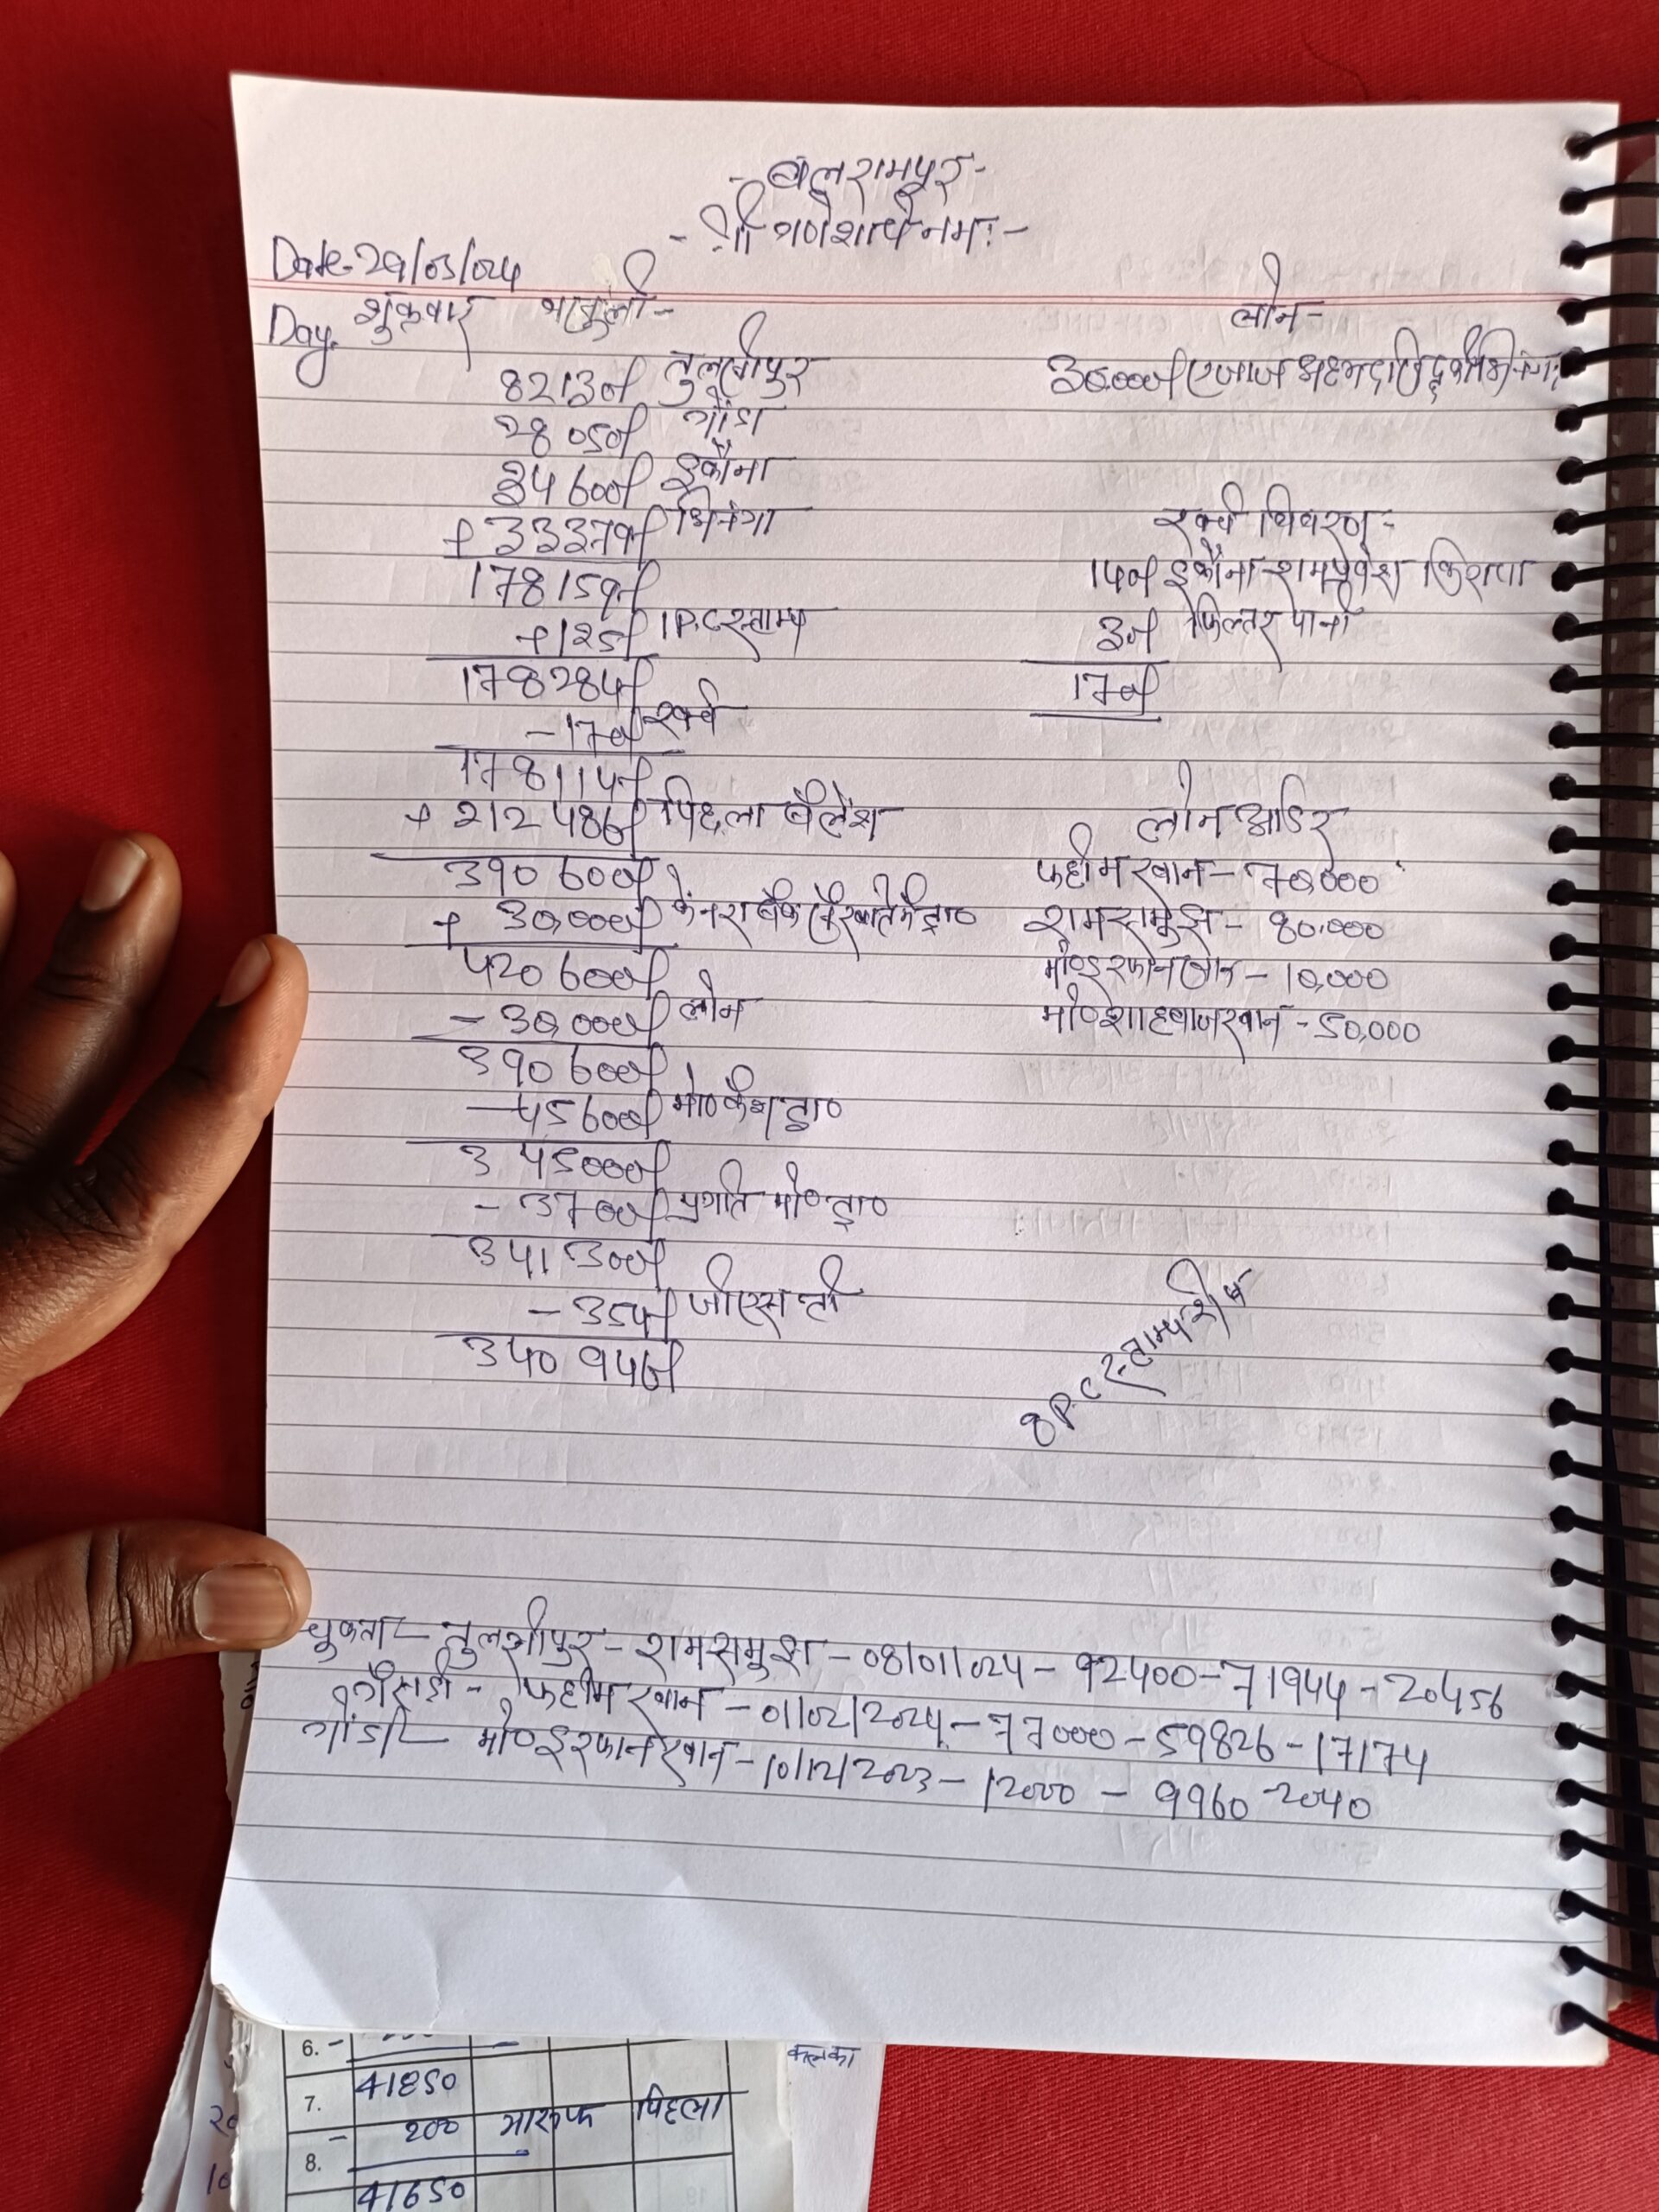 -बलरामपुर-
-श्री गणेशाये नमः-
Date-29/03/024
Day. शुक्रवार वासुली-
82130/ तुलसीपुर
28050/ गोंडा
34600/ इकौना
+33379/ भिनगा
178159/
+125/ 1P.C स्टाम्प
178284/
-170/ खर्च
178114/
+212486/ पिछला बैलेंश
390600/
+30,000/ केनरा बैंक खाते में ट्रा०
420600/
-30,000/ लोन
390600/
-45600/ मो० कैश ट्रा०
345000/
-3700/ प्रगति मो० ट्रा०
341300/
-354/ जीएस टी
340946/
लोन-
30,000/ एजाज अहमद सिद्दकी भिनगा
खर्च विवरण-
140/ इकौना रामप्रवेश किराया
30/ फिल्टर पानी
170/
लोन आर्डर
फहीम खान - 70,000
रामसमुझ - 80,000
मो०इरफान खान - 10,000
मो०शाहबाज खान - 50,000
8 P.C स्टाम्प शेष
चुकता - तुलशीपुर - रामसमुझ - 08/01/024 - 92400 - 71944 - 20456
गैसडी - फहीम खान - 01/02/2024 - 77000 - 59826 - 17174
गोंडा - मो०इरफान खान - 10/12/2023 - 12000 - 9960 - 2040
6. -
7. 41850
- 200 मारूफ पिछला
8.
41650
कलका